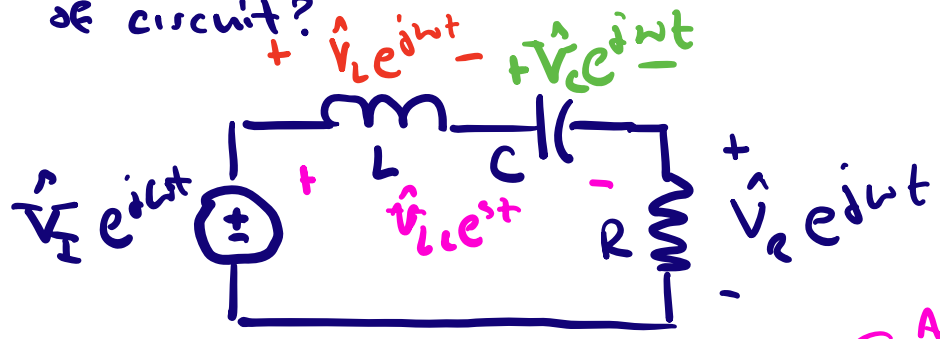 of circuit?
+ V̂_L e^{jωt} -
+ V̂_c e^{jωt} -
L
C
+
V̂_I e^{jωt}
±
+ V̂_{LC} e^{st} -
R
V̂_R e^{jωt}
-
A